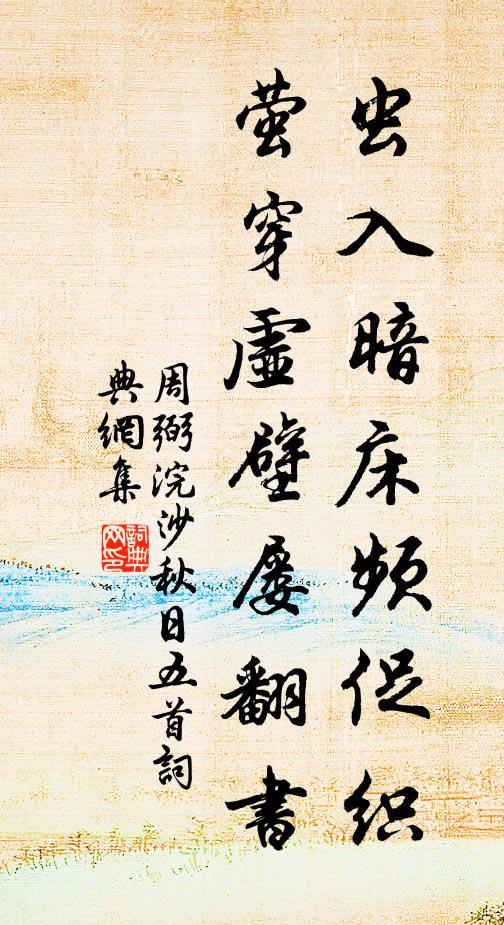 虫入暗床频促织
萤穿虚壁屡翻書
周弼浣沙秋日五首詞
典網集
詞典
网印